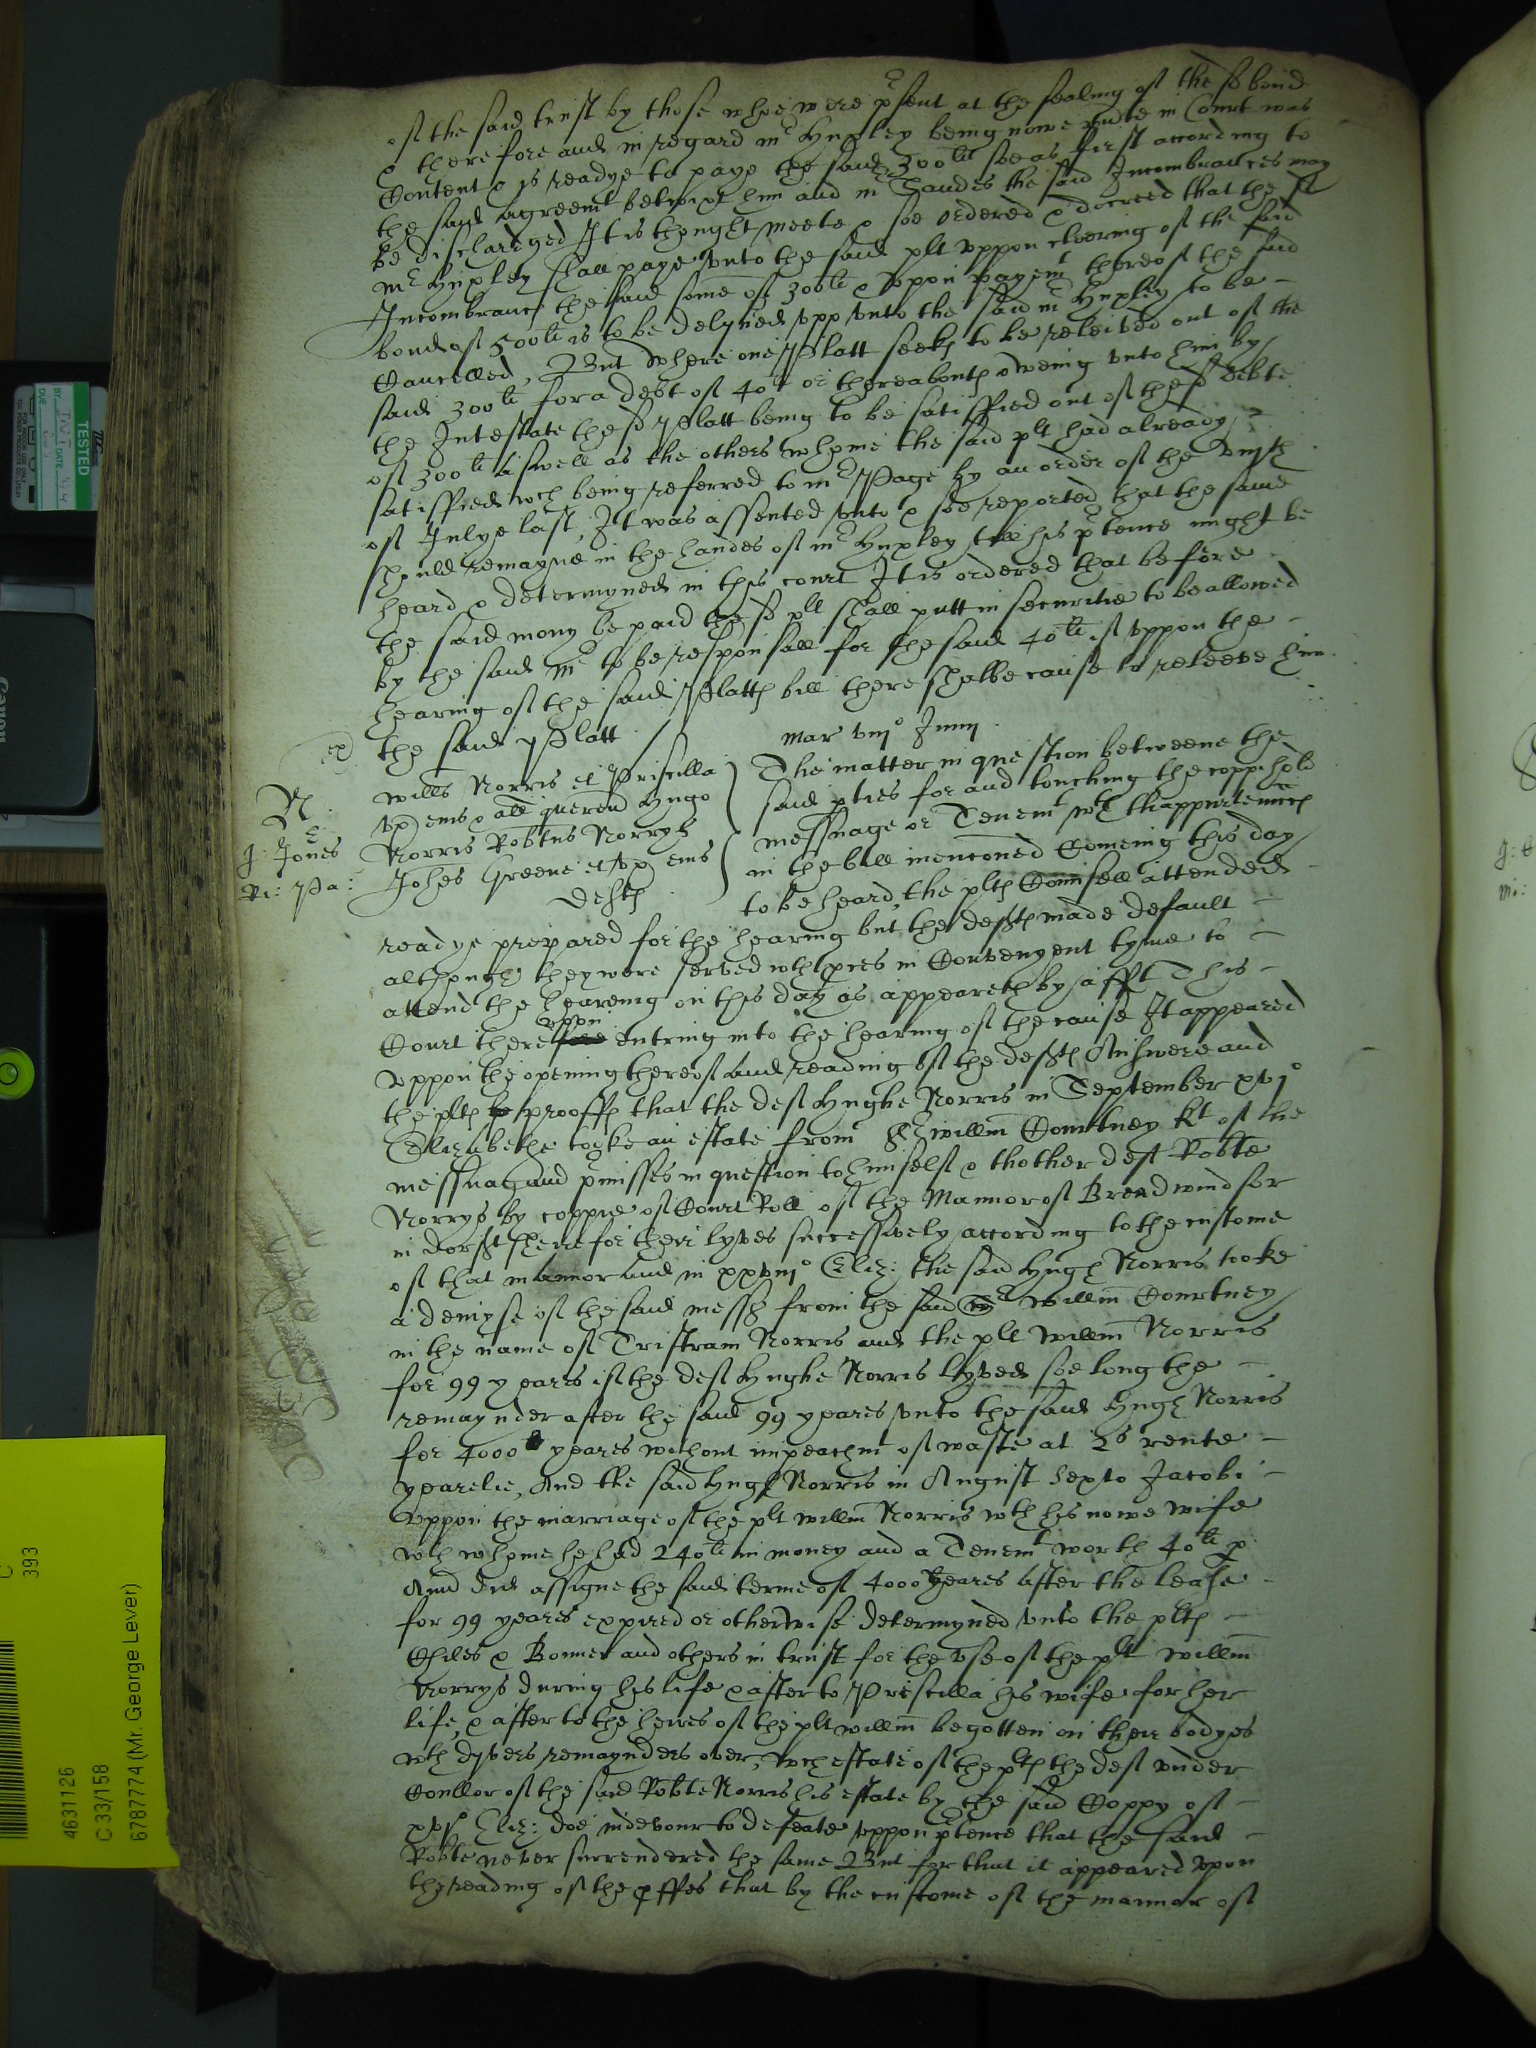 of the said trust by those whoe were p'sent at the sealing of the sd bond
& therefore and in regard mr Huxley being nowe p'nte in Court was
Content & is readye to paye the said 300li soe as first according to
the said agreemt betwixt him and mr the said Incombrances may
be dischardged It is thought meete & soe ordered & decreed that the sd
mr Huxley shall paye vnto the said plt vppon cleering of the said
Incombranc the said some of 300li & vpon payemt thereof the said
bond of 500li is to be delyued vpp vnto the said mr Huxley to be
Cancelled, But where one Platt seeks to be releived out of the
said 300li for a debt of 40li or thereabouts oweing vnto him by
the Intestate the sd Platt being to be satisfied out of the sd debte
of 300li aswell as the others whome the said plt had already
satisfied wch being referred to mr Page by an order of the
of Julye last, It was assented vnto & soe reported that the same
should remayne in the handes of mr Huxley till his p'tence might be
heard & determyned in this court It is ordered that before
the said mony be paid the sd plt shall putt in securitie to be allowed
by the said mr to be responsall for the said 40li if vppon the
hearing of the said Platts bill there shalbe cause to releeve him
the said Platt
ex
Mar viijo Junij
N
J: Jones
Ri: Pa:
Wills Norris et Priscilla
vx eius & all queren Hugo
Norris Robtus Norrys
Johes Greene et vx eius
defts
The matter in question betweene the
said pties for and touching the coppihold
messuage or Tenemt wth thappurtenncs
in the bill menconed Comeing this day
to be heard, the plts Counsell attended
readye prepared for the hearing but the defts made default
although they were served wth pces in Convenyent tyme to
attend the heareing on this day as appeareth by afft This
Court there vpon entring into the hearing of the cause It appeared
vppon the opening thereof and reading of the defts Answere and
the plts prooffs that the deft Hughe Norris in September xvjo
Elizabethe tooke an estate from Sr Willm Courtney Kt of the
messuag and p'misses in question to himself & thother deft Robte
Norrys by coppie of Court Roll of the Mannor of Broadwindsor
in Dorsetsheire for their lyves successively according to the custome
of that mannor and in xxviijo Eliz: the said Hugh Norris tooke
a demyse of the said messu from the said Sr Willm Courtney
in the name of Tristram Norris and the plt Willm Norris
for 99 yeares if the deft Hughe Norris lyved soe long the
remaynder after the said 99 yeares vnto the said Hugh Norris
for 4000 yeares without impeachmt of waste at 2s rente
yearelie, And the said Hugh Norris in August sexto Jacobi
vppon the marriage of the plt Willm Norris wth his nowe wife
wth whome he had 240li in money and a Tenemt worth 40li p
Annu did assigne the said terme of 4000 yeares after the lease
for 99 yeares expired or otherwise determyned vnto the plts
Chiles & Bonner and others in trust for the vse of the plt Willm
Norrys during his life & after to Priscilla his wife for her
life & after to the heires of the plt Willm begotten on their bodyes
wth dyvers remaynders over, wch estate of the plts the deft vnder
Coullor of the said Robte Norris his estate by the said Coppy of
xvjo Eliz: doe indevour to defeate vppon p'tence that the said
Robte never surrendered the same But for that it appeared vpon
the reading of the pffes that by the custome of the mannor of
TESTED
BY
DATE
DUE
Canon
C
393
4631126
C 33/158
6787774 (Mr. George Lever)